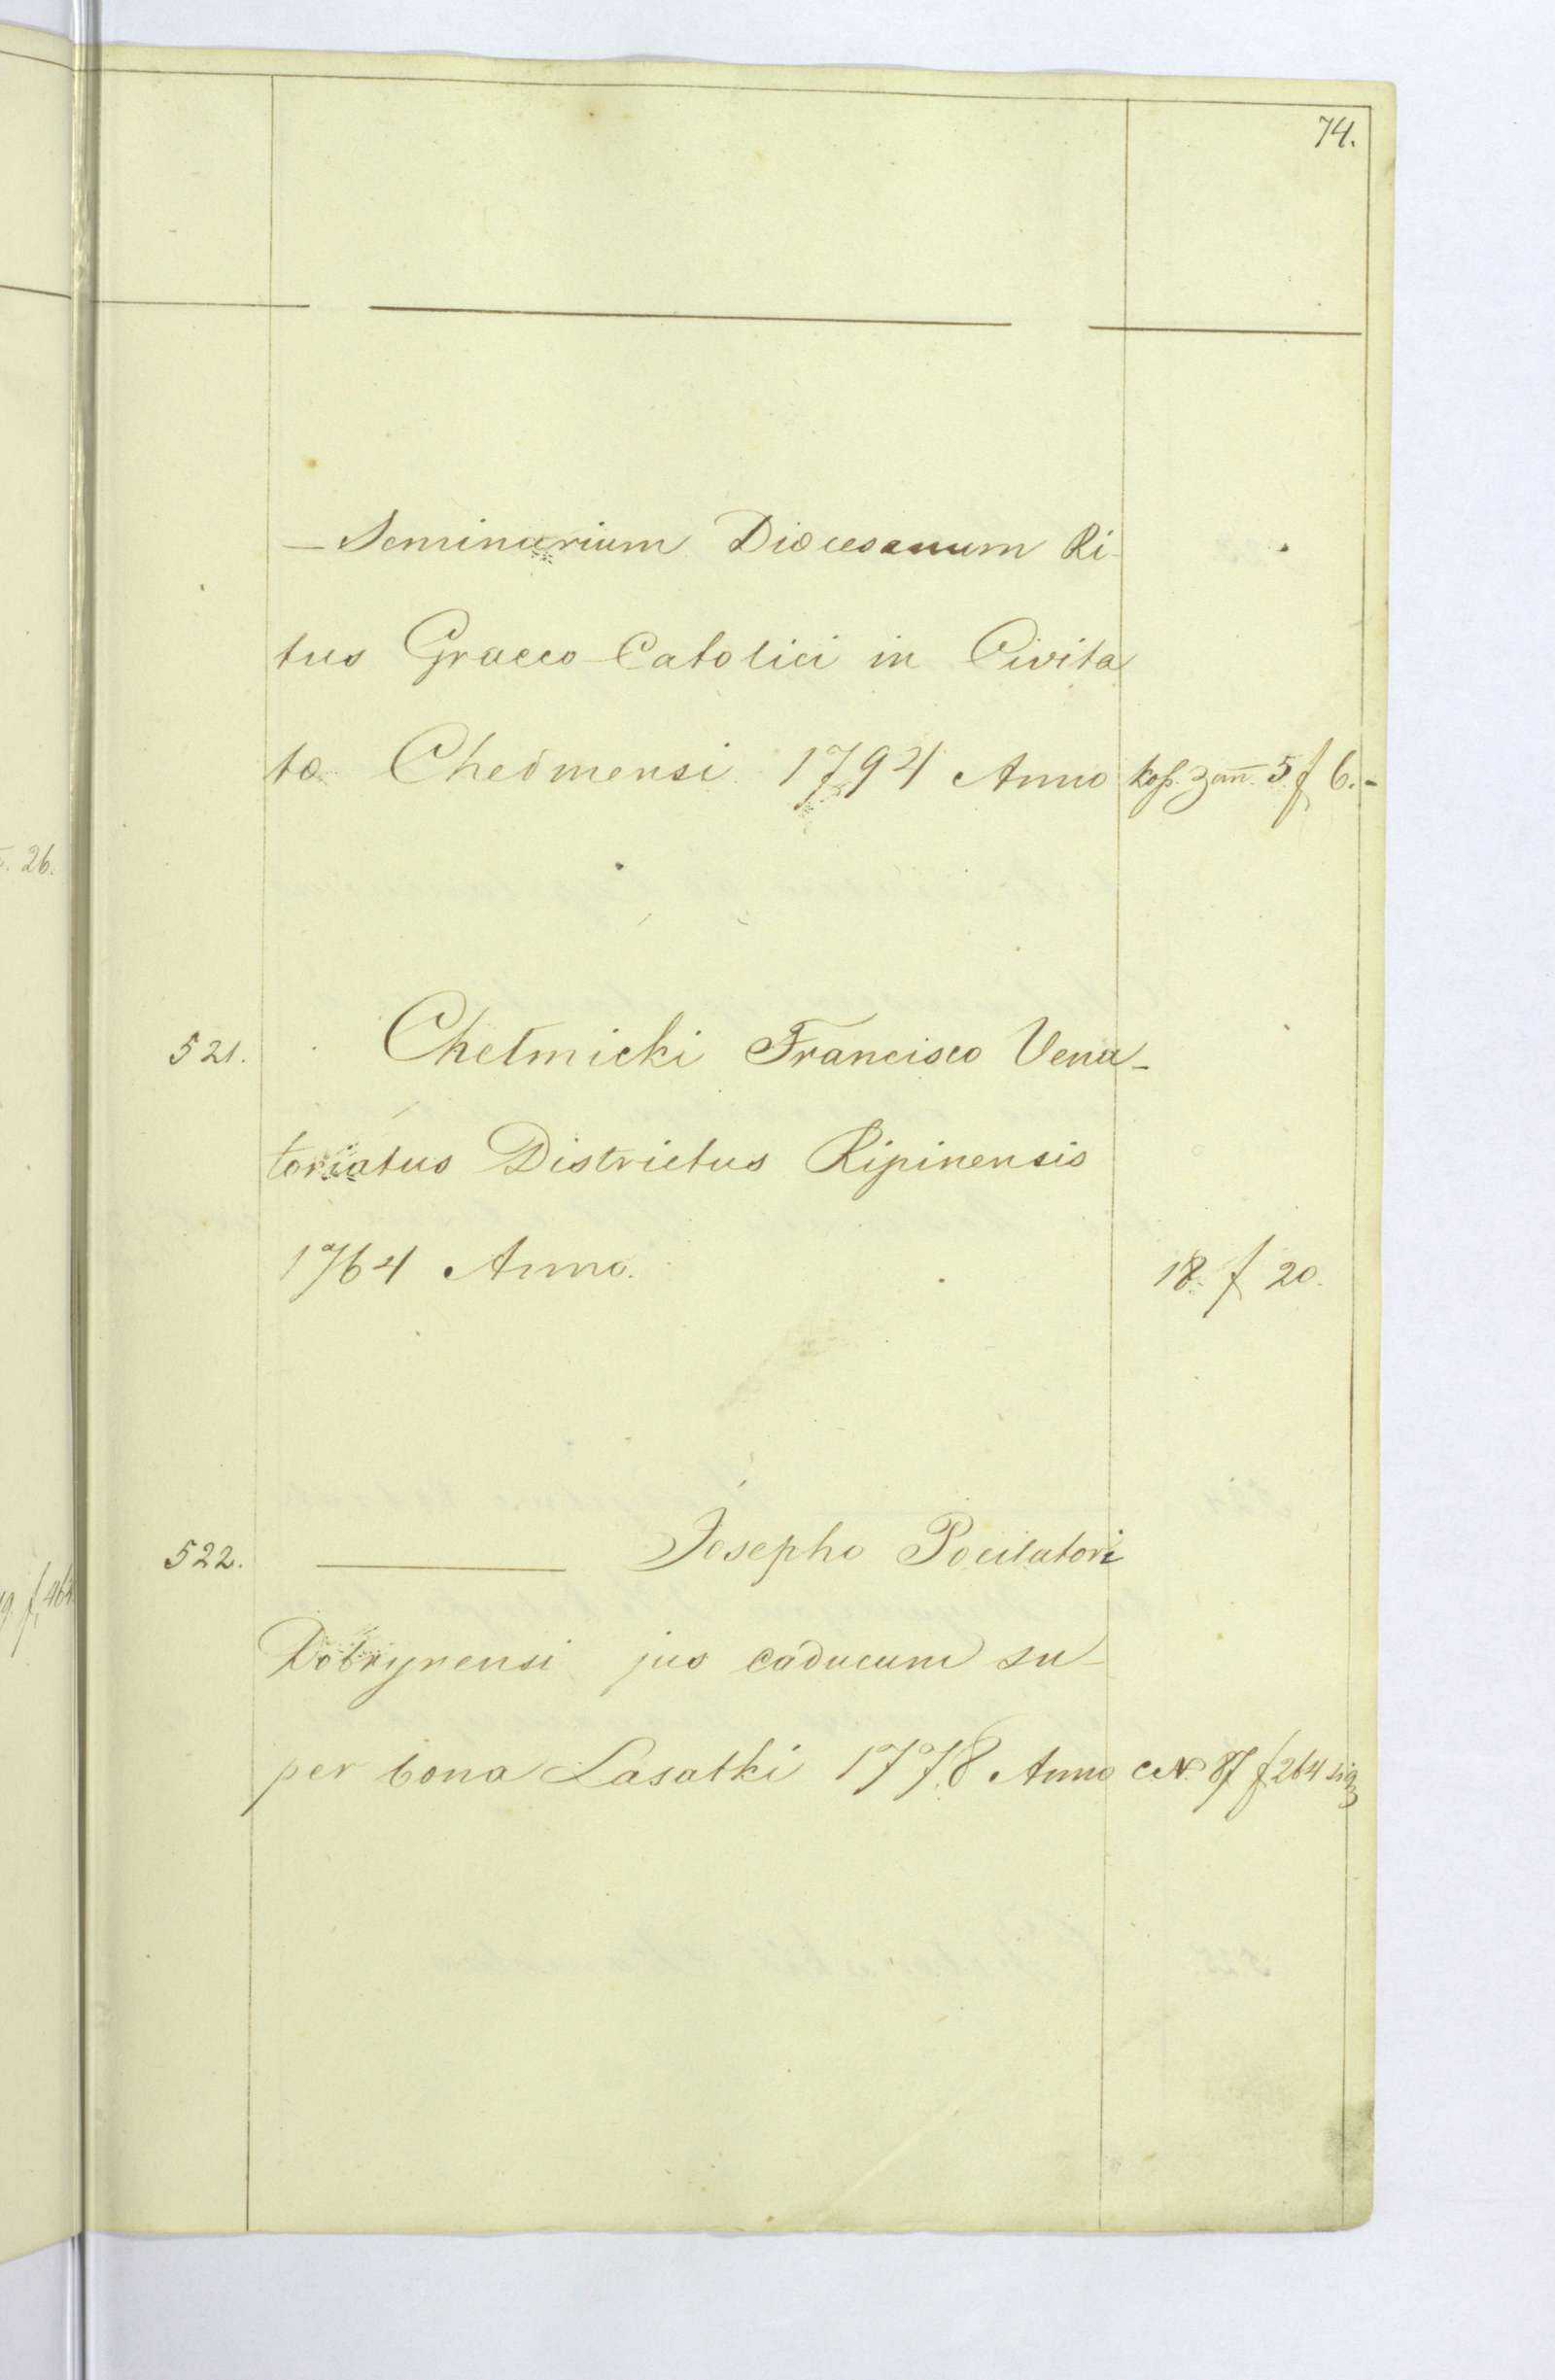 74.
— Seminarium Diocesanum Ri-
tus Graeco-Catolici in Civita
te Chelmensi 1794 Anno 5 f 6.-
26.
521. Chełmicki Francisco Vena-
toriatus Districtus Ripinensis
1764 Anno. 18. f 20.
522. ——— Josepho Pocilatori
Dobrynensi jus caducum su-
per bona Lasatki 1778 Anno cN. 87 f 264 sig